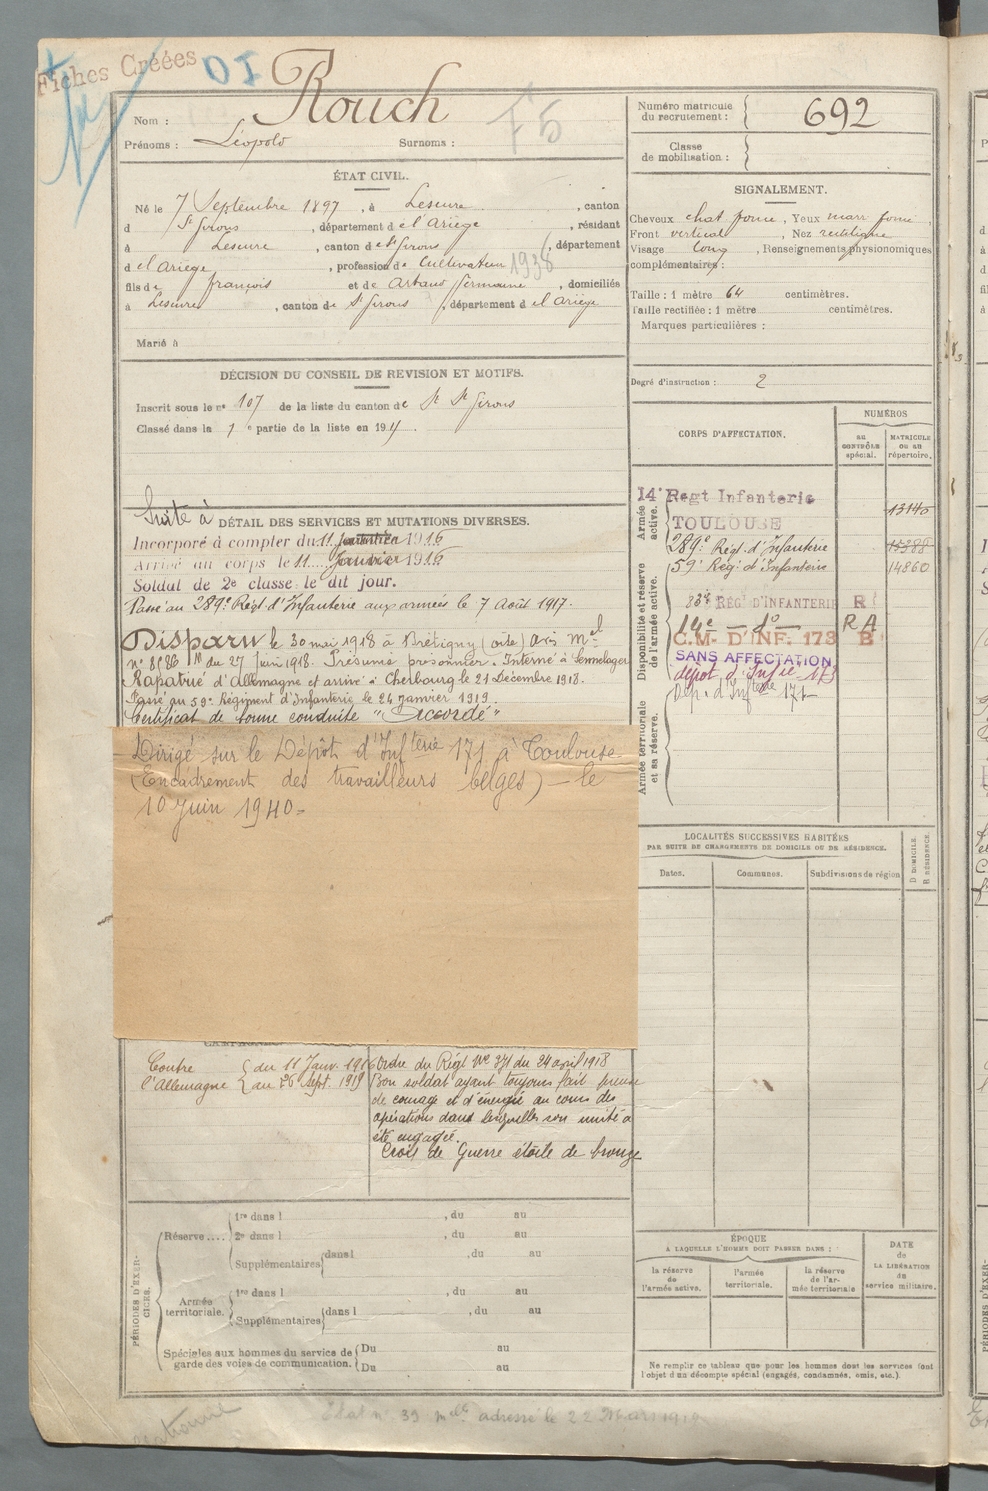 Fiches Créées
DI
Rouch
F5
Nom :
Prénoms : Léopold Surnoms :
ÉTAT CIVIL.
Né le 7 Septembre 1897, à Lescure, canton
d St Girons, département de l'Ariège, résidant
à Lescure, canton de St Girons, département
d el Ariège, profession de Cultivateur 1938
fils de françois et de Arbaud Germaine, domiciliés
à Lescure, canton de St Girons, département d el Ariège
Marié à
DÉCISION DU CONSEIL DE REVISION ET MOTIFS.
Inscrit sous le n° 107 de la liste du canton de St Girons
Classé dans la 1e partie de la liste en 191
Suite à DÉTAIL DES SERVICES ET MUTATIONS DIVERSES.
Incorporé à compter du 11 1916
Arrivé au corps le 11 Janvier 1916
Soldat de 2e classe le dit jour.
Passé au 289e Régt d'Infanterie aux armées le 7 Août 1917.
Disparu le 30 mai 1918 à Brétigny (oise) Avis Mel
du 27 Juin 1918. Présumé prisonnier. Interné à
Rapatrié d'Allemagne et arrivé à Cherbourg le 21 Décembre 1918.
Passé au 59e Régiment d'Infanterie le 24 Janvier 1919
Certificat de bonne conduite "Accordé"
Dirigé sur le Dépôt d'Infterie 171 à Toulouse
(Encadrement des travailleurs belges) - le
10 Juin 1940 -
CAMPAGNES
Contre du 11 Janv. 1916
l'Allemagne au 26 Sept. 1919
Ordre du Régt No 371 du 24 avril 1918
Bon soldat ayant toujours fait preuve
de courage et d'énergie au cours des
opérations dans lesquelles son unité a
été engagée.
Croix de Guerre étoile de bronze
PÉRIODES D'EXERCICES.
Réserve....
1re dans l , du au
2e dans l , du au
Supplémentaires dans l , du au
Armée territoriale.
1re dans l , du au
Supplémentaires dans l , du au
Spéciales aux hommes du service de garde des voies de communication.
Du au
Du au
Numéro matricule du recrutement : 692
Classe de mobilisation :
SIGNALEMENT.
Cheveux chat foncé, Yeux marr foncé,
Front vertical, Nez rectiligne
Visage long, Renseignements physionomiques
complémentaires :
Taille : 1 mètre 64 centimètres.
Taille rectifiée : 1 mètre centimètres.
Marques particulières :
Degré d'instruction : 2
CORPS D'AFFECTATION.
NUMÉROS
au CONTRÔLE spécial.
MATRICULE ou au répertoire.
Armée active.
14e Regt Infanterie
TOULOUSE
13140
289e Régt d'Infanterie 15388
59e Rég. d'Infanterie 14860
Disponibilité et réserve de l'armée active.
83e REGt D'INFANTERIE R
14e — do — R A
C.M- D'INF: 173 B
SANS AFFECTATION
dépôt d'Infie 173
Dép. d'Infterie 171
Armée territoriale et sa réserve.
LOCALITÉS SUCCESSIVES HABITÉES
PAR SUITE DE CHANGEMENTS DE DOMICILE OU DE RÉSIDENCE.
Dates.
Communes.
Subdivisions de région
D DOMICILE.
R RÉSIDENCE.
ÉPOQUE
A LAQUELLE L'HOMME DOIT PASSER DANS :
la réserve de l'armée active.
l'armée territoriale.
la réserve de l'armée territoriale
DATE de LA LIBÉRATION du service militaire.
Ne remplir ce tableau que pour les hommes dont les services font
l'objet d'un décompte spécial (engagés, condamnés, omis, etc.).
Etat n° 39 melle adressé le 22 Mars 1919